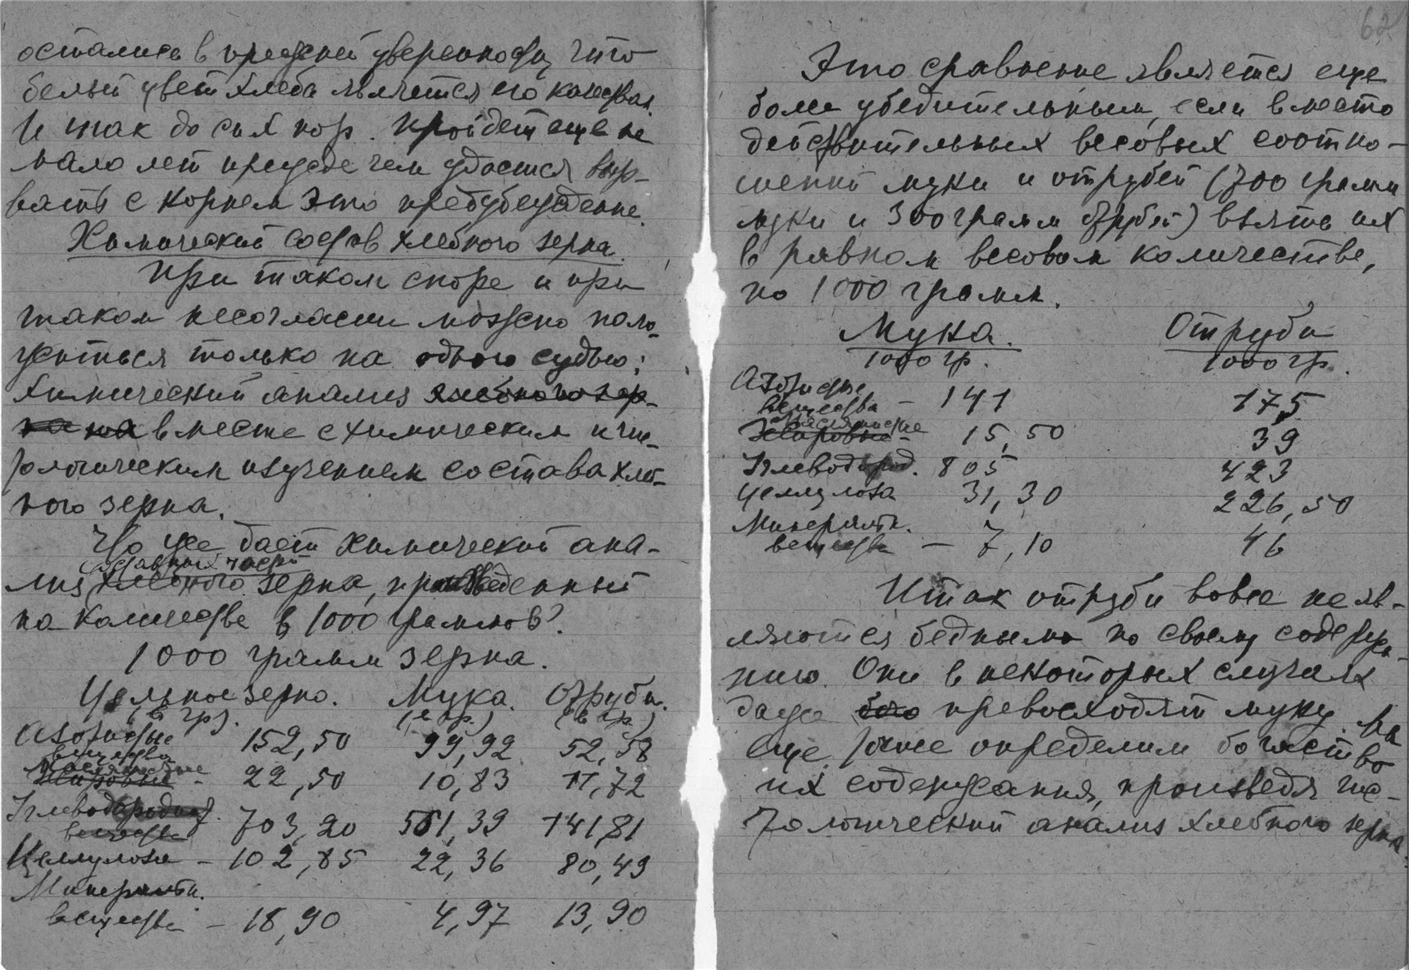 остались в прежней уверенности, что
белый цвет хлеба является его качеством.
И так до сих пор. Пройдет еще не
мало лет прежде чем удастся выр-
вать с корнем это предубеждение.
Химический состав хлебного зерна.
При таком споре и при
таком несогласии можно поло-
житься только на одного судью:
химический анализ хлебного зер-
на на вместе с химическим и гис-
тологическим изучением состава хлеб-
ного зерна.
Что же дает химический ана-
составных частей
лиз хлебного зерна, произведенный
на количестве в 1000 граммов?
1000 грамм зерна.
Цельное зерно. Мука. Отруби.
(в гр). (в гр.) (в гр.)
Азотистые
вещества 152,50 99,92 52,58
Маслянистые
Жировые - 22,50 10,83 11,72
Углеводородные
вещества 703,20 561,39 141,81
Целлулоза - 102,85 22,36 80,49
Минеральн.
вещества - 18,90 4,97 13,90
62
Это сравнение является еще
более убедительным, если вместо
действительных весовых соотно-
шений муки и отрубей (700 грамм
муки и 300 грамм отрубей) взять их
в равном весовом количестве,
по 1000 грамм.
Мука. Отруби
1000 гр. 1000 гр.
Азотистые
вещества - 141 175
Маслянистые
Жировые - 15,50 39
Углеводород. 805 423
Целлулоза 31,30 226,50
Минеральн.
вещества - 7,10 46
Итак отруби вовсе не яв-
ляются бедными по своему содержа-
нию. Они в некоторых случаях
даже его превосходят муку. Мы
еще точнее определим богатство
их содержания, произведя гис-
тологический анализ хлебного зерна.